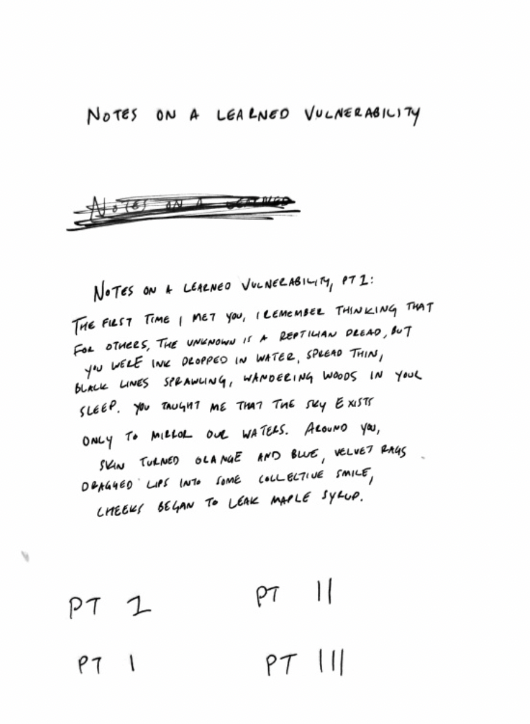 NOTES ON A LEARNED VULNERABILITY
NOTES ON A LEARNED
NOTES ON A LEARNED VULNERABILITY, PT 1:
THE FIRST TIME I MET YOU, I REMEMBER THINKING THAT
FOR OTHERS, THE UNKNOWN IS A REPTILIAN DREAD, BUT
YOU WERE INK DROPPED IN WATER, SPREAD THIN,
BLACK LINES SPRAWLING, WANDERING WOODS IN YOUR
SLEEP. YOU TAUGHT ME THAT THE SKY EXISTS
ONLY TO MIRROR OUR WATERS. AROUND YOU,
SKIN TURNED ORANGE AND BLUE, VELVET RAGS
DRAGGED LIPS INTO SOME COLLECTIVE SMILE,
CHEEKS BEGAN TO LEAK MAPLE SYRUP.
PT 1 PT II
PT I PT III